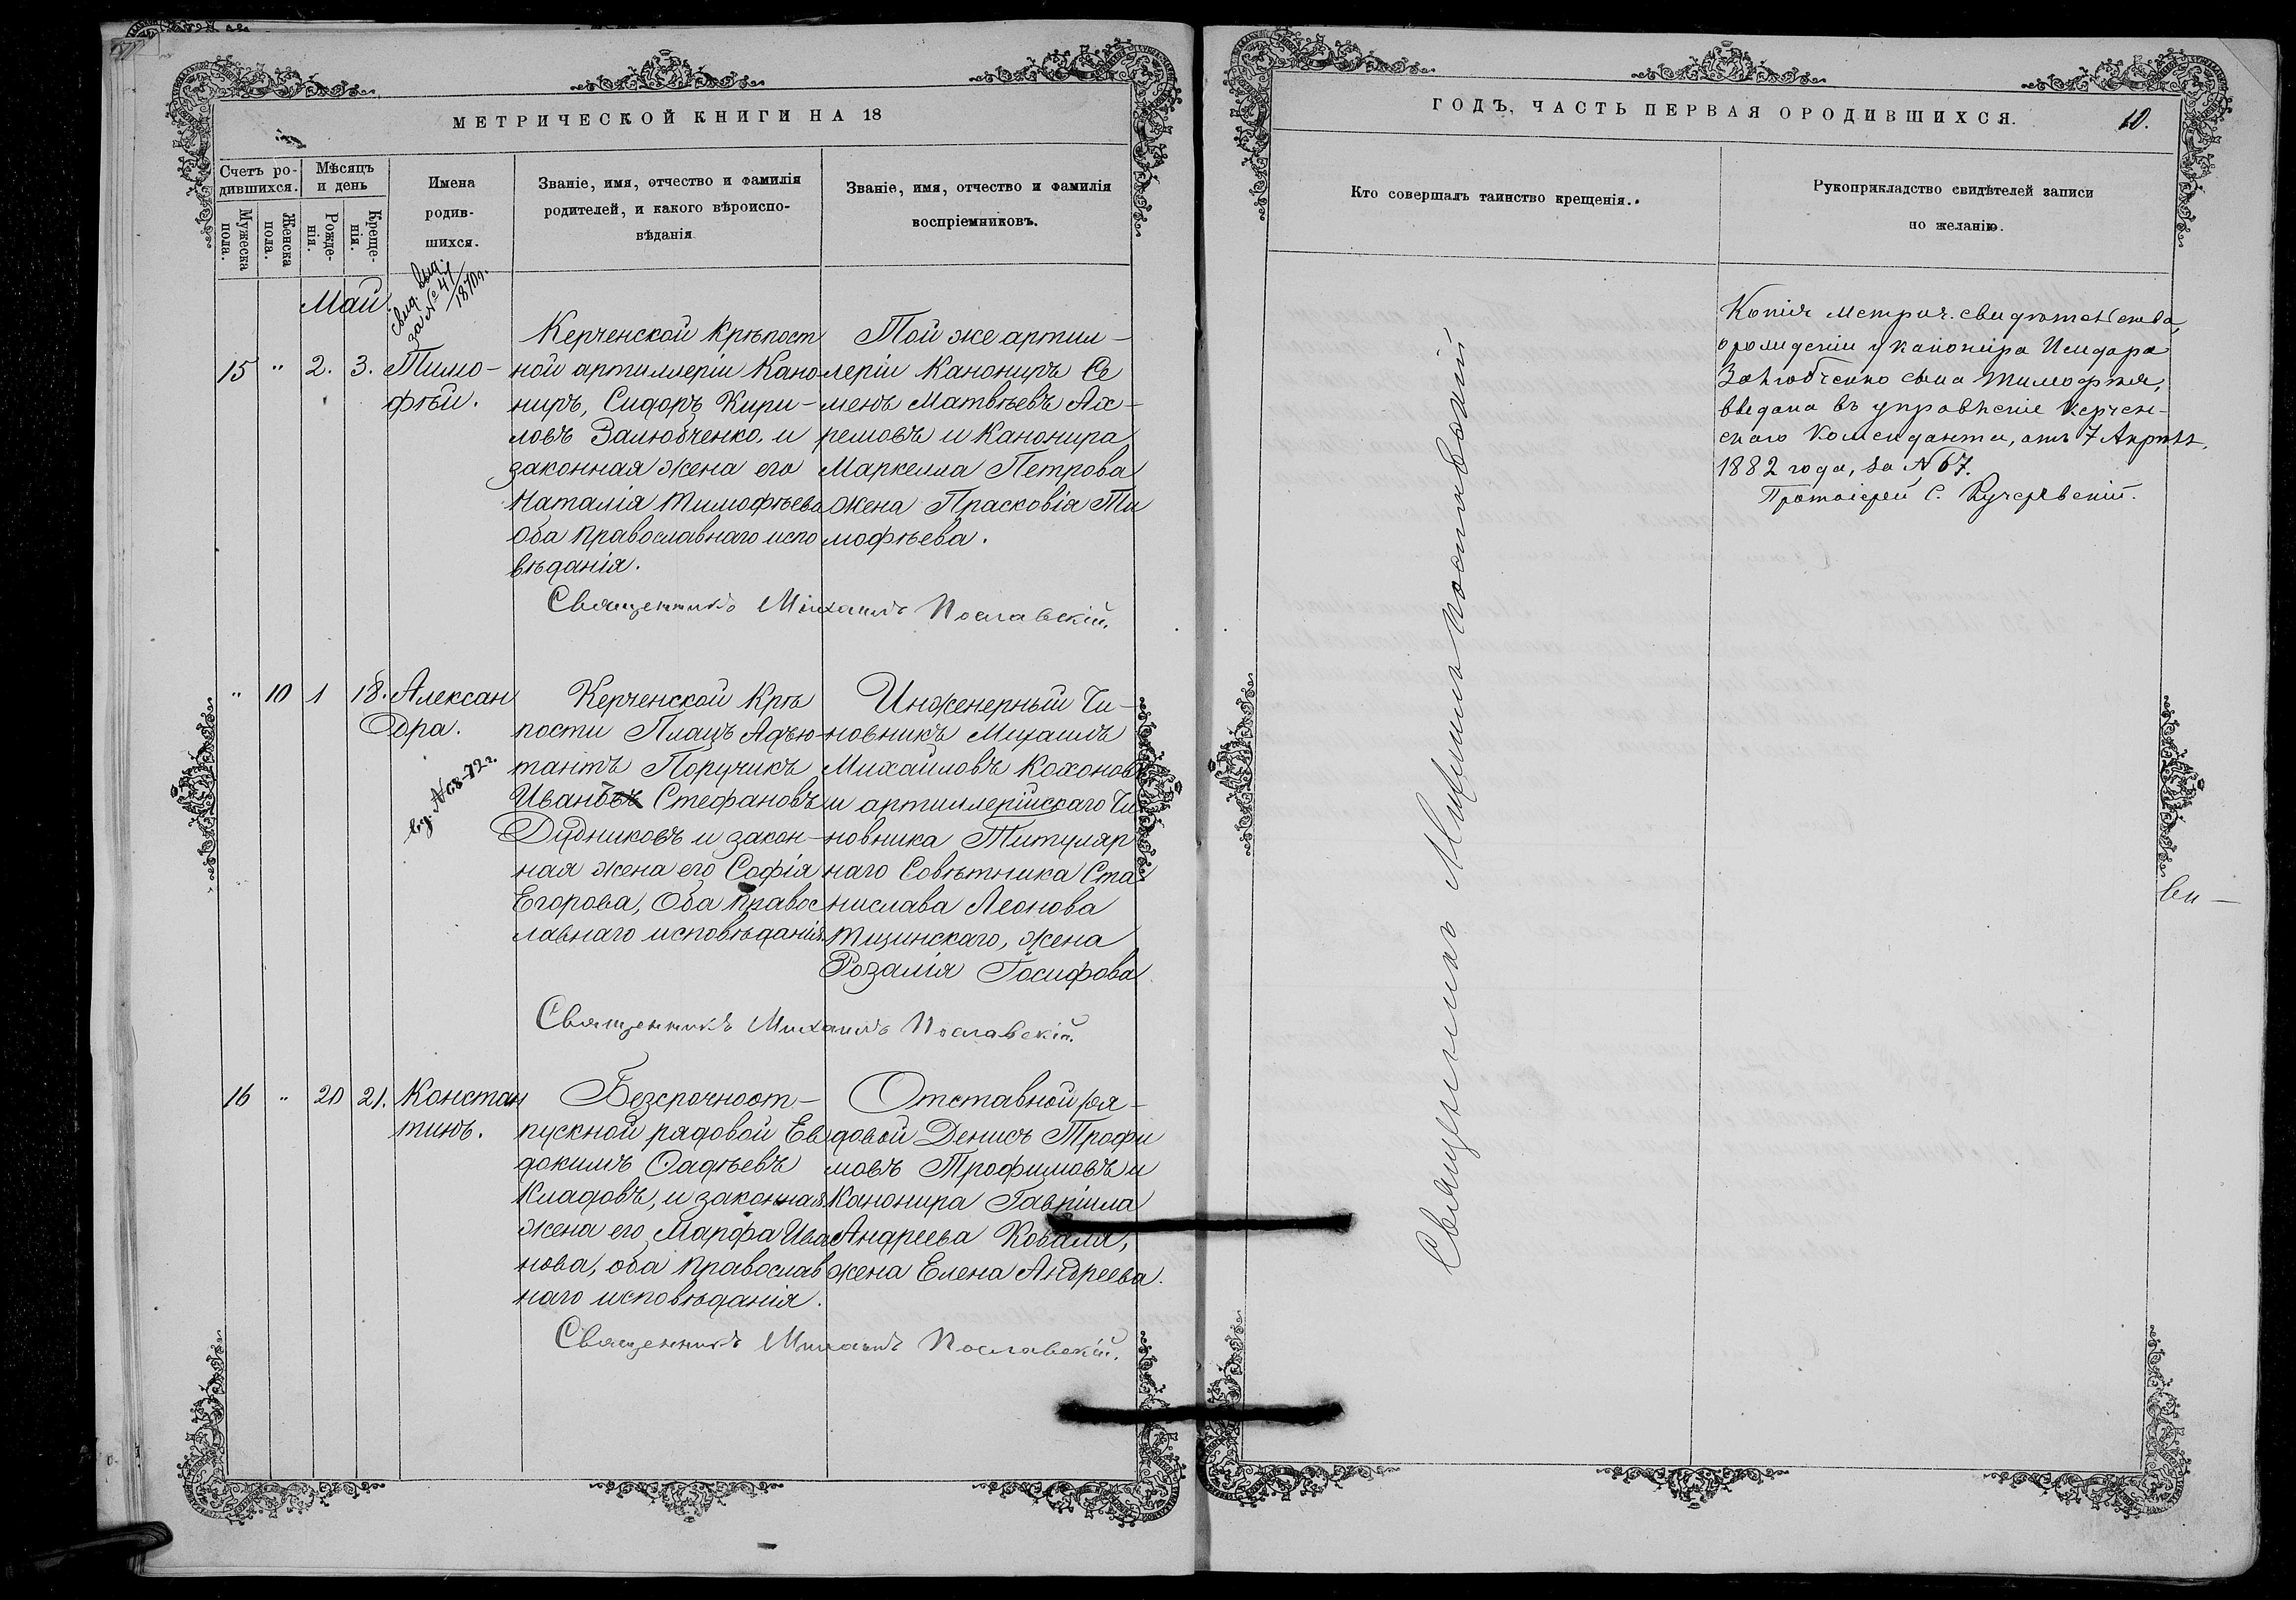 МЕТРИЧЕСКОЙ КНИГИ НА 18
Счетъ ро-
дившихся.
Мужеска
пола.
Женска
пола.
Мѣсяцъ
и день
Рожде-
нія.
Креще-
нія.
Имена
родив-
шихся.
Званіе, имя, отчество и фамилія
родителей, и какого вѣроиспо-
вѣданія
Званіе, имя, отчество и фамилія
воспріемниковъ.
Май.
свид. выд.
за № 41
1870 г.
15 " 2. 3. Тимо-
ѳѣй.
Керченской Крѣпост
ной артиллеріи Кано-
ниръ, Сидоръ Кири-
ловъ Залюбченко, и
законная жена его
Наталія Тимофѣева
Оба православнаго испо
вѣданія.
Той же артил-
леріи Канониръ Се
менъ Матвѣевъ Ах-
ремовъ и Канонира
Маркелла Петрова
жена Прасковія Ти
мофѣева.
Священникъ Михаилъ Пославскій.
" 10 1 18. Алексан
дра.
вы. № 68-72 г.
Керченской Крѣ
пости Плацъ Адъю-
тантъ Поручикъ
Иванъ Стефановъ
Дудниковъ и закон-
ная жена его Софія
Егорова, Оба правос
лавнаго исповѣданія.
Инженерный Чи-
новникъ Михаилъ
Михаиловъ Кохоновъ
и артиллерійскаго Чи
новника Титуляр
наго Совѣтника Ста
нислава Леонова
Тицинскаго, жена
Розалія Іосифова
Священникъ Михаилъ Пославскій.
16 " 20 21. Констан
тинъ.
Безсрочноот-
пускной рядовой Ев
докимъ Фадѣевъ
Кладовъ, и законная
жена его Марфа Ива
нова, оба православ
наго исповѣданія.
Отставной ря-
довой Денисъ Трофи
мовъ Трофимовъ и
Канонира Гавріила
Андреева Коваля,
жена Елена Андреева.
Священникъ Михаилъ Пославскій.
ГОДЪ, ЧАСТЬ ПЕРВАЯ ОРОДИВШИХСЯ.
10.
Кто совершалъ таинство крещенія.
Рукоприкладство свидѣтелей записи
по желанію.
Священникъ Михаилъ Пославскій
Копія метрич. свидѣтельства
о рожденіи у канонира Исидора
Залюбченко сына Тимофея,
выдана въ управленіе Керчен-
скаго Коменданта, отъ 7 Апрѣля
1882 года, за № 67.
Протоіерей С. Кучеревскій.